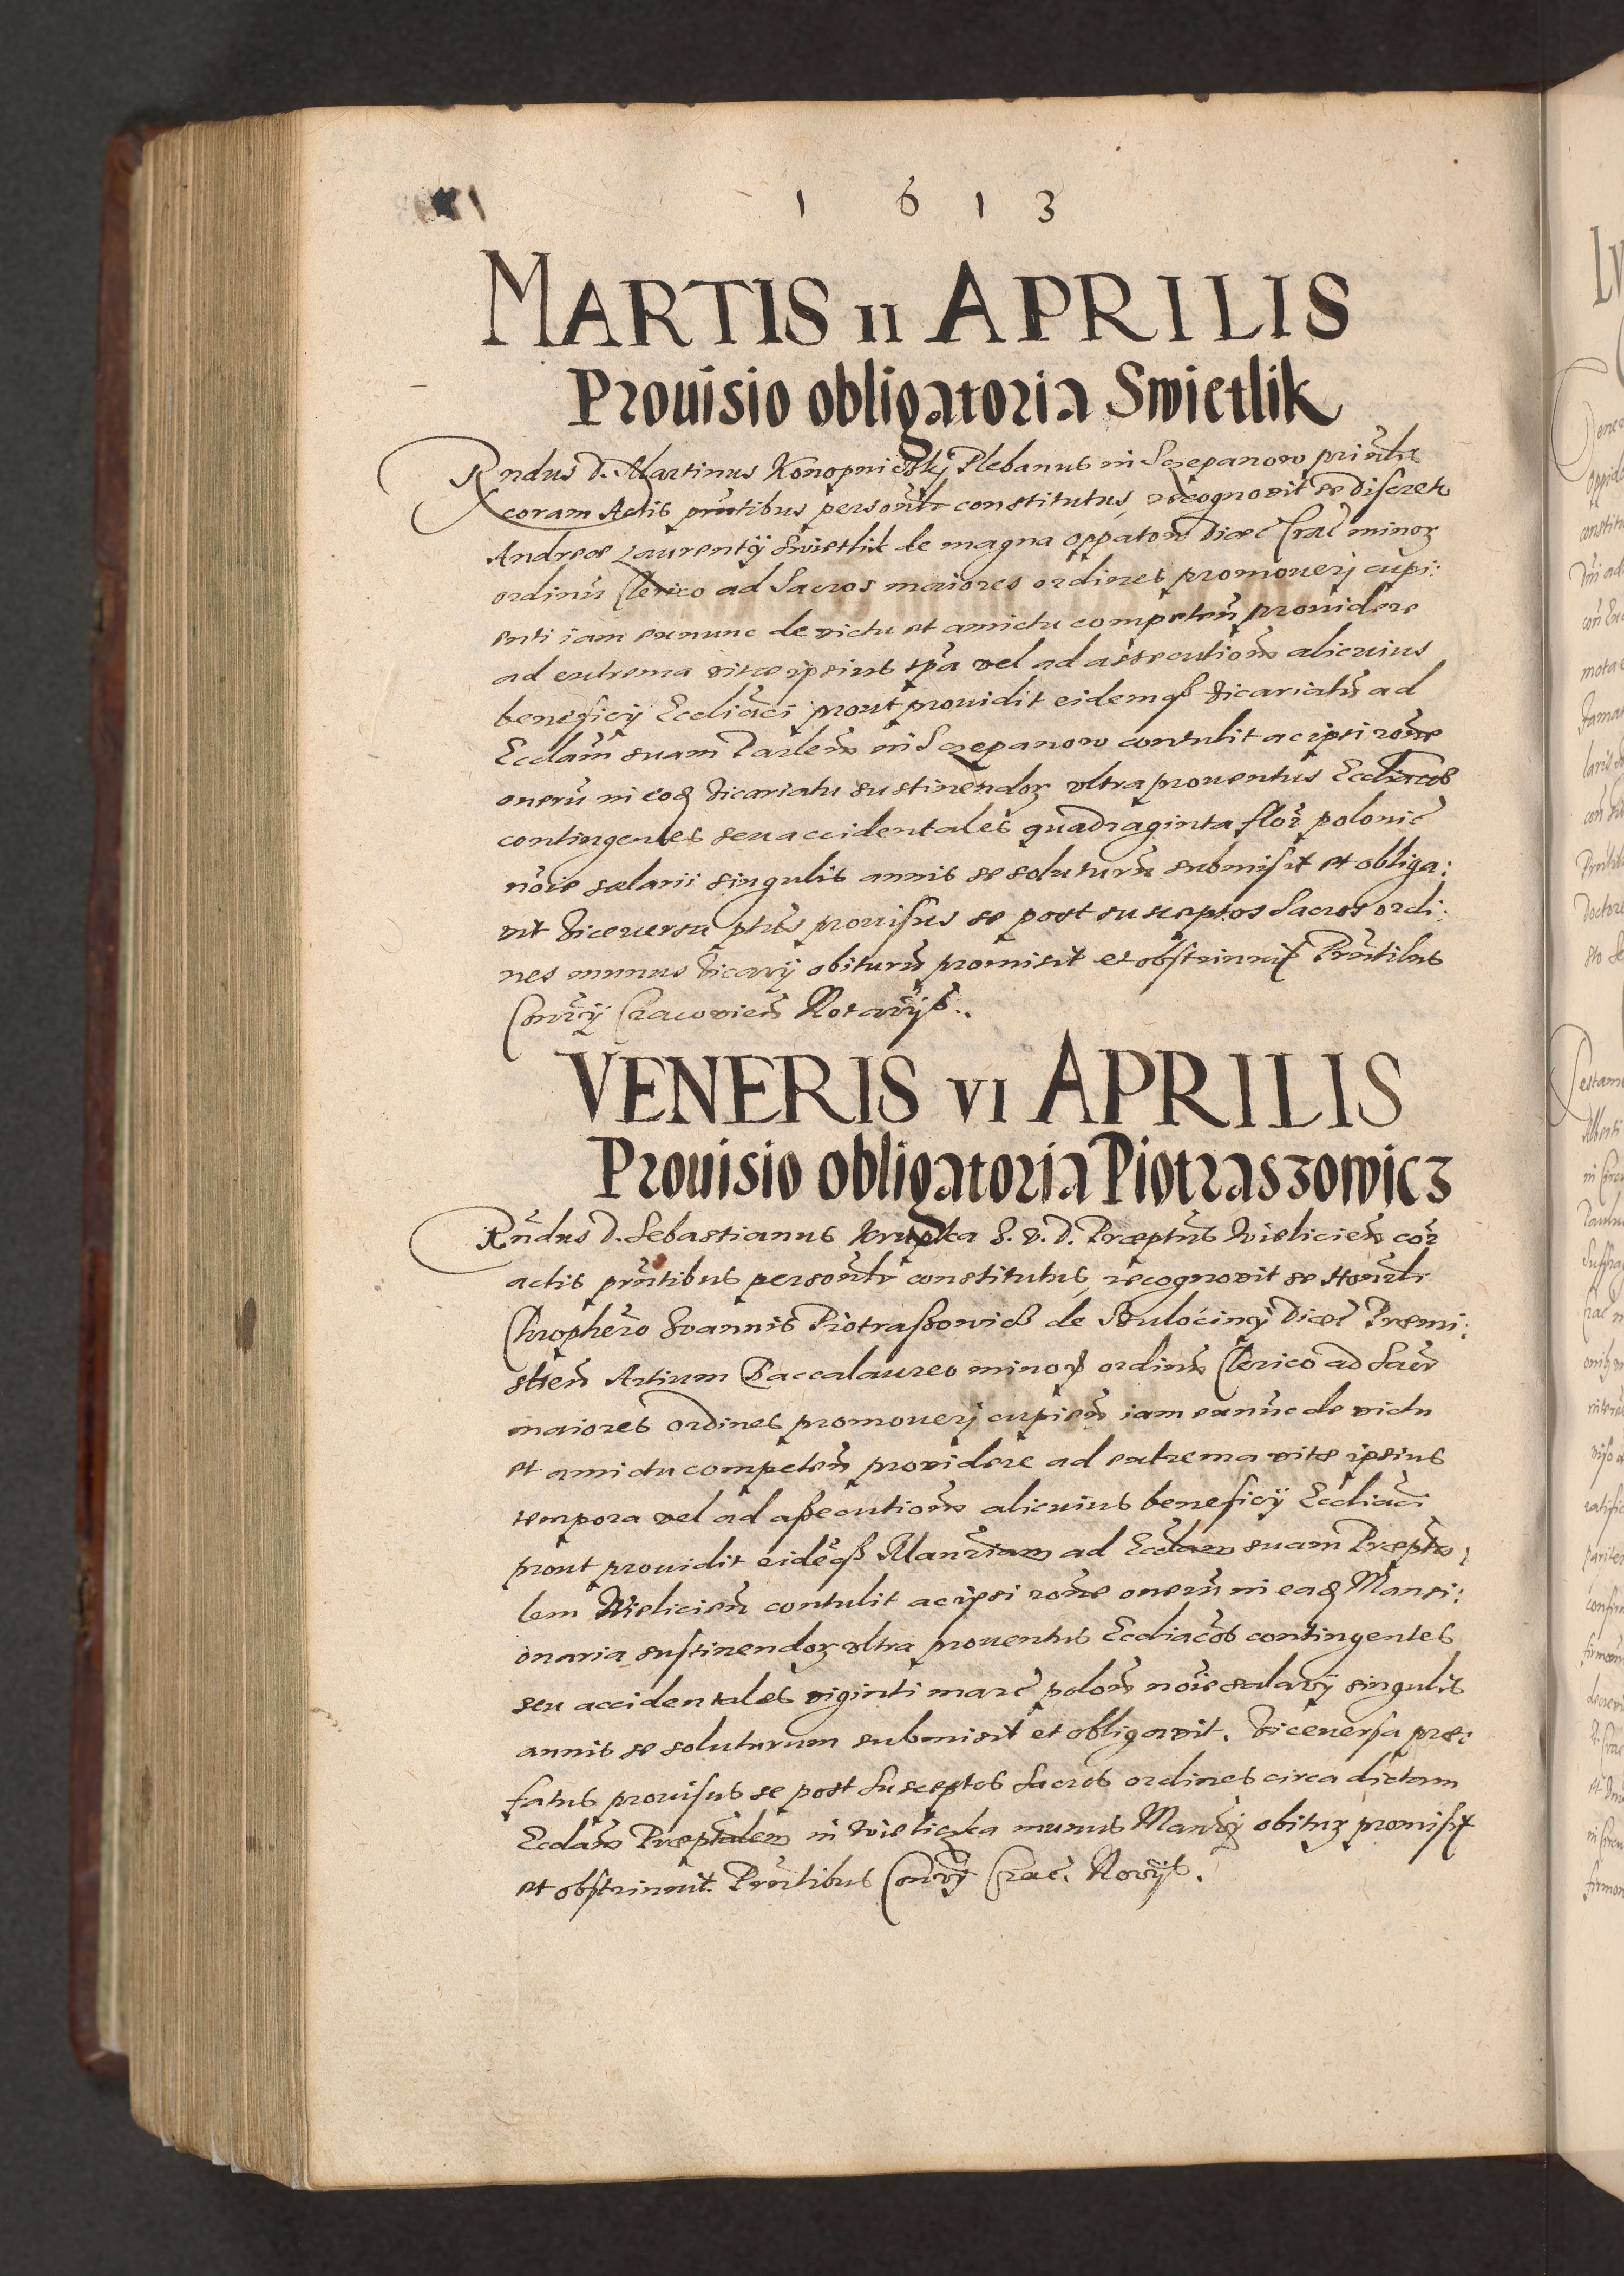 1 6 1 3
MARTIS II APRILIS
Prouisio obligatoria Swietlik
Rndus D. Martinus Konopniczkÿ Plebanus in Sczepanow
coram Actis pñtibus personlr constitutus, recognovit se Discreto
Andreæ Laurentÿ Swietlik de magna oppatow Diæc Crac minoꝝ
ordinũ Clerico ad Sacros maiores ordines promoueri cupi:
enti iam exnunc de victu et amictu competen̄ prouidere
ad extrema vitæ ipsius tpa vel ad assecutionẽ alicuius
beneficÿ Ecclīaci prout prouidit eidemqß vicariatũ ad
Eccl̃am suam Parlem in Sczepanow contulit ac ipsi rone
onerũ in eoq vicariatu sustinendoꝝ vltra prouentus Eccl̃iacos
contingentes seu accidentales quadraginta flor polonic
noīe salarii singulis annis se soluturũ submisit et obliga:
vit viceuersa ptus prouisus se post susceptos Sacros ordi:
nes munus vicarÿ obiturũ promisit et obstrinxit Prñtibus
Consrÿ Cracovien̄ Notarÿß.
VENERIS VI APRILIS
Prouisio obligatoria Piotraszowicz
Rñdus D. Sebastianus Krupka S. V. D. Præptus Wielicien̄ cor
actis prñtibus personlr constitutus, recognovit se Honesto
Chrophero Joannis Piotraßowicß de Diæc Præmi:
slien̄ Artium Baccalaureo minoꝝ ordinũ Clerico ad Sacr
maiores ordines promoueri cupien̄ iam exnũc de victu
et amictu competen̄ providere ad extrema vitæ ipsius
tempora vel ad aßecutionẽ alicuius beneficÿ Eccliaci
prout prouidit eidẽqß Mansriam ad Ecclam suam Præpto:
lem Wielicien̄ contulit ac ipsi rone onerũ in eaq Mansi:
onaria sustinendoꝝ vltra prouentus Eccliacos contingentes
seu accidentales viginti marc polon noīe salarÿ singulis
annis se soluturum submisit et obligavit. Viceuersa præ:
fatus prouisus se post susceptos sacros ordines circa dictam
Ecclam Præptalem in Wieliczka munus Mansrÿ obituꝝ promisit
et obstrinxit. Prñtibus Consrÿ Crac. Norÿß.